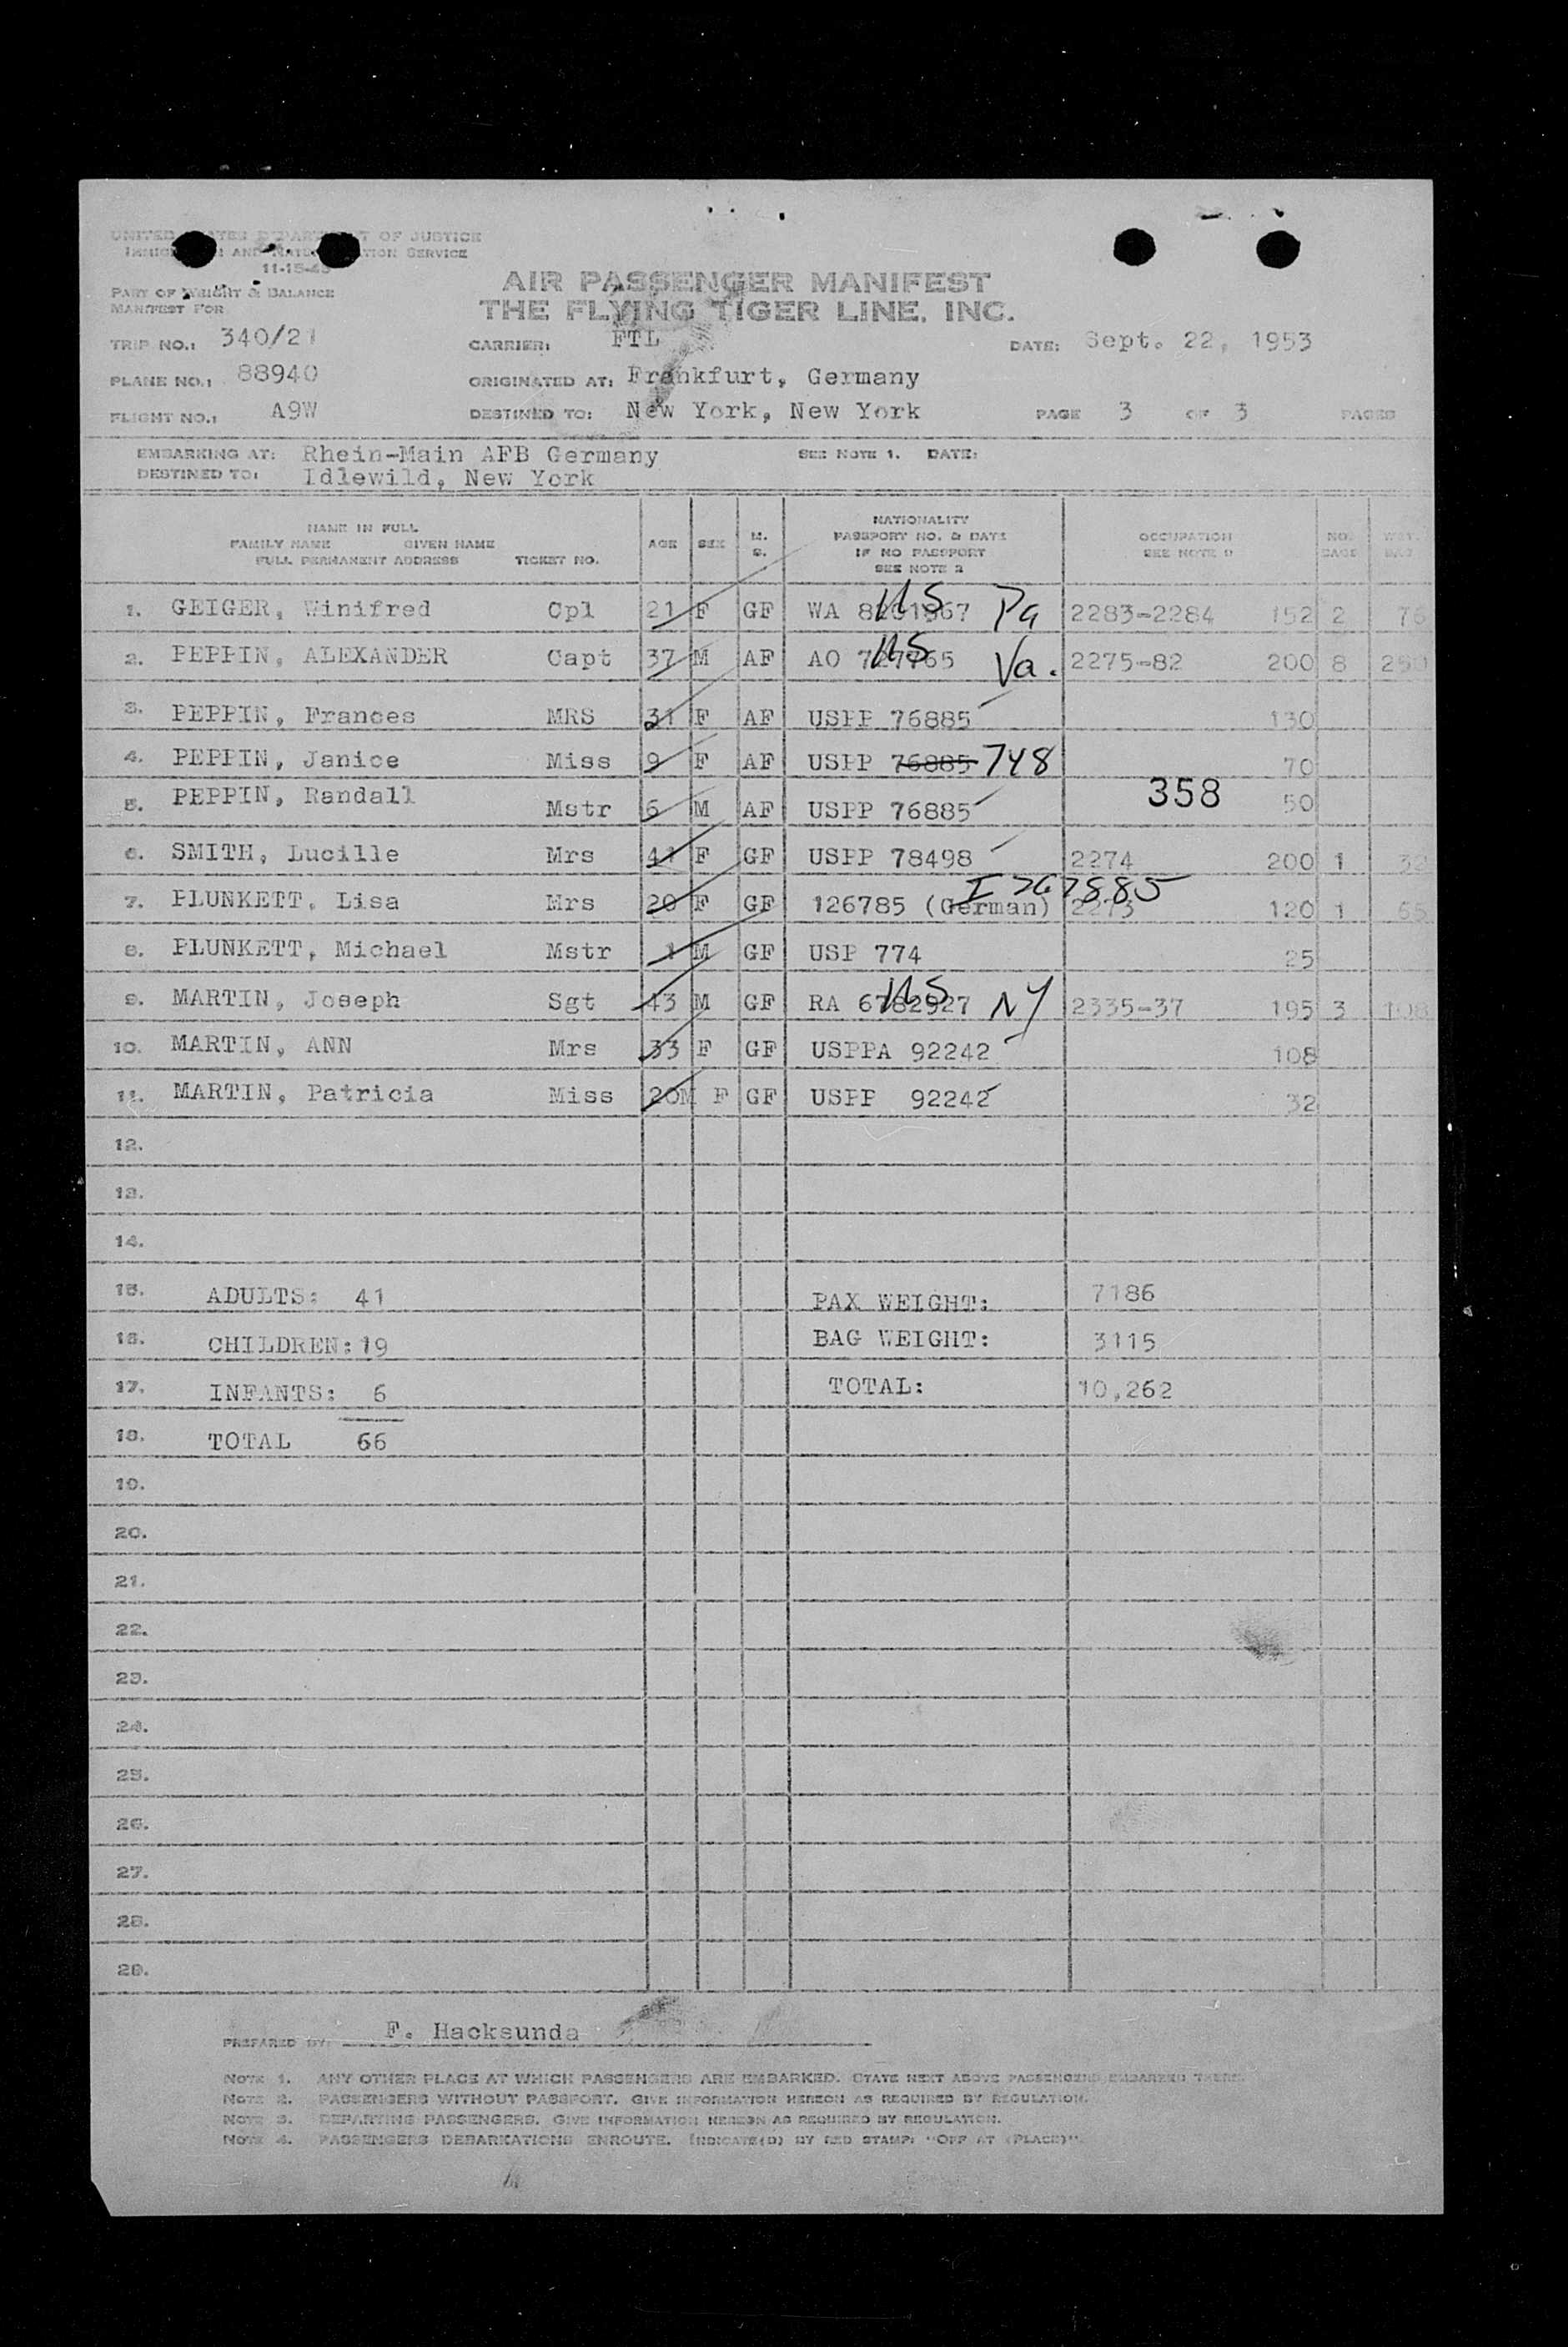 UNITED STATES DEPARTMENT OF JUSTICE
IMMIGRATION AND NATURALIZATION SERVICE
11-15-45
PART OF WEIGHT & BALANCE
MANIFEST FOR
AIR PASSENGER MANIFEST
THE FLYING TIGER LINE, INC.
TRIP NO.: 340/21 CARRIER: FTL DATE: Sept. 22, 1953
PLANE NO.: 88940 ORIGINATED AT: Frankfurt, Germany
FLIGHT NO.: A9W DESTINED TO: New York, New York PAGE 3 OF 3 PAGES
EMBARKING AT: Rhein-Main AFB Germany SEE NOTE 1. DATE:
DESTINED TO: Idlewild, New York
NAME IN FULL
FAMILY NAME GIVEN NAME
FULL PERMANENT ADDRESS TICKET NO. AGE SEX M. S.
NATIONALITY
PASSPORT NO. & DATE
IF NO PASSPORT
SEE NOTE 2
OCCUPATION
SEE NOTE
NO. BAGS
1. GEIGER, Winifred Cpl 21 F GF WA US Pa 2283-2284 152 2 76
2. PEPPIN, ALEXANDER Capt 37 M AF AO US Va. 2275-82 200 8 250
3. PEPPIN, Frances MRS 31 F AF USPP 76885 130
4. PEPPIN, Janice Miss 9 F AF USPP 76885 748 70
358
5. PEPPIN, Randall Mstr 6 M AF USPP 76885 50
6. SMITH, Lucille Mrs 41 F GF USPP 78498 2274 200 1 32
7. PLUNKETT, Lisa Mrs 20 F GF 126785 (German) I 767885 2273 120 1 65
8. PLUNKETT, Michael Mstr 1 M GF USP 774 25
9. MARTIN, Joseph Sgt 43 M GF RA 6782927 US NY 2335-37 195 3 108
10. MARTIN, ANN Mrs 33 F GF USPPA 92242 108
11. MARTIN, Patricia Miss 20M F GF USPP 92242 32
12.
13.
14.
15. ADULTS: 41 PAX WEIGHT: 7186
16. CHILDREN: 19 BAG WEIGHT: 3115
17. INFANTS: 6 TOTAL: 10,262
18. TOTAL 66
19.
20.
21.
22.
23.
24.
25.
26.
27.
28.
29.
PREPARED BY: F. Hacksunda
NOTE 1. ANY OTHER PLACE AT WHICH PASSENGERS ARE EMBARKED. STATE NEXT ABOVE PASSENGERS EMBARKED THERE.
NOTE 2. PASSENGERS WITHOUT PASSPORT. GIVE INFORMATION HEREON AS REQUIRED BY REGULATION.
NOTE 3. DEPARTING PASSENGERS. GIVE INFORMATION HEREON AS REQUIRED BY REGULATION.
NOTE 4. PASSENGERS DEBARKATIONS ENROUTE. INDICATE(D) BY RED STAMP: "OFF AT (PLACE)".